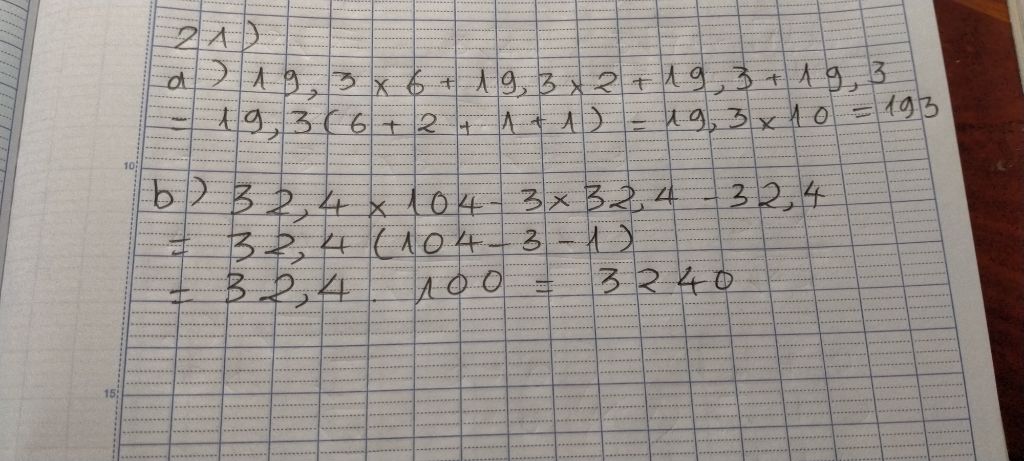 21)
a) 19,3 x 6 + 19,3 x 2 + 19,3 + 19,3
= 19,3(6 + 2 + 1 + 1) = 19,3 x 10 = 193
10
b) 32,4 x 104 - 3 x 32,4 - 32,4
= 32,4 (104 - 3 - 1)
= 32,4 . 100 = 3240
15